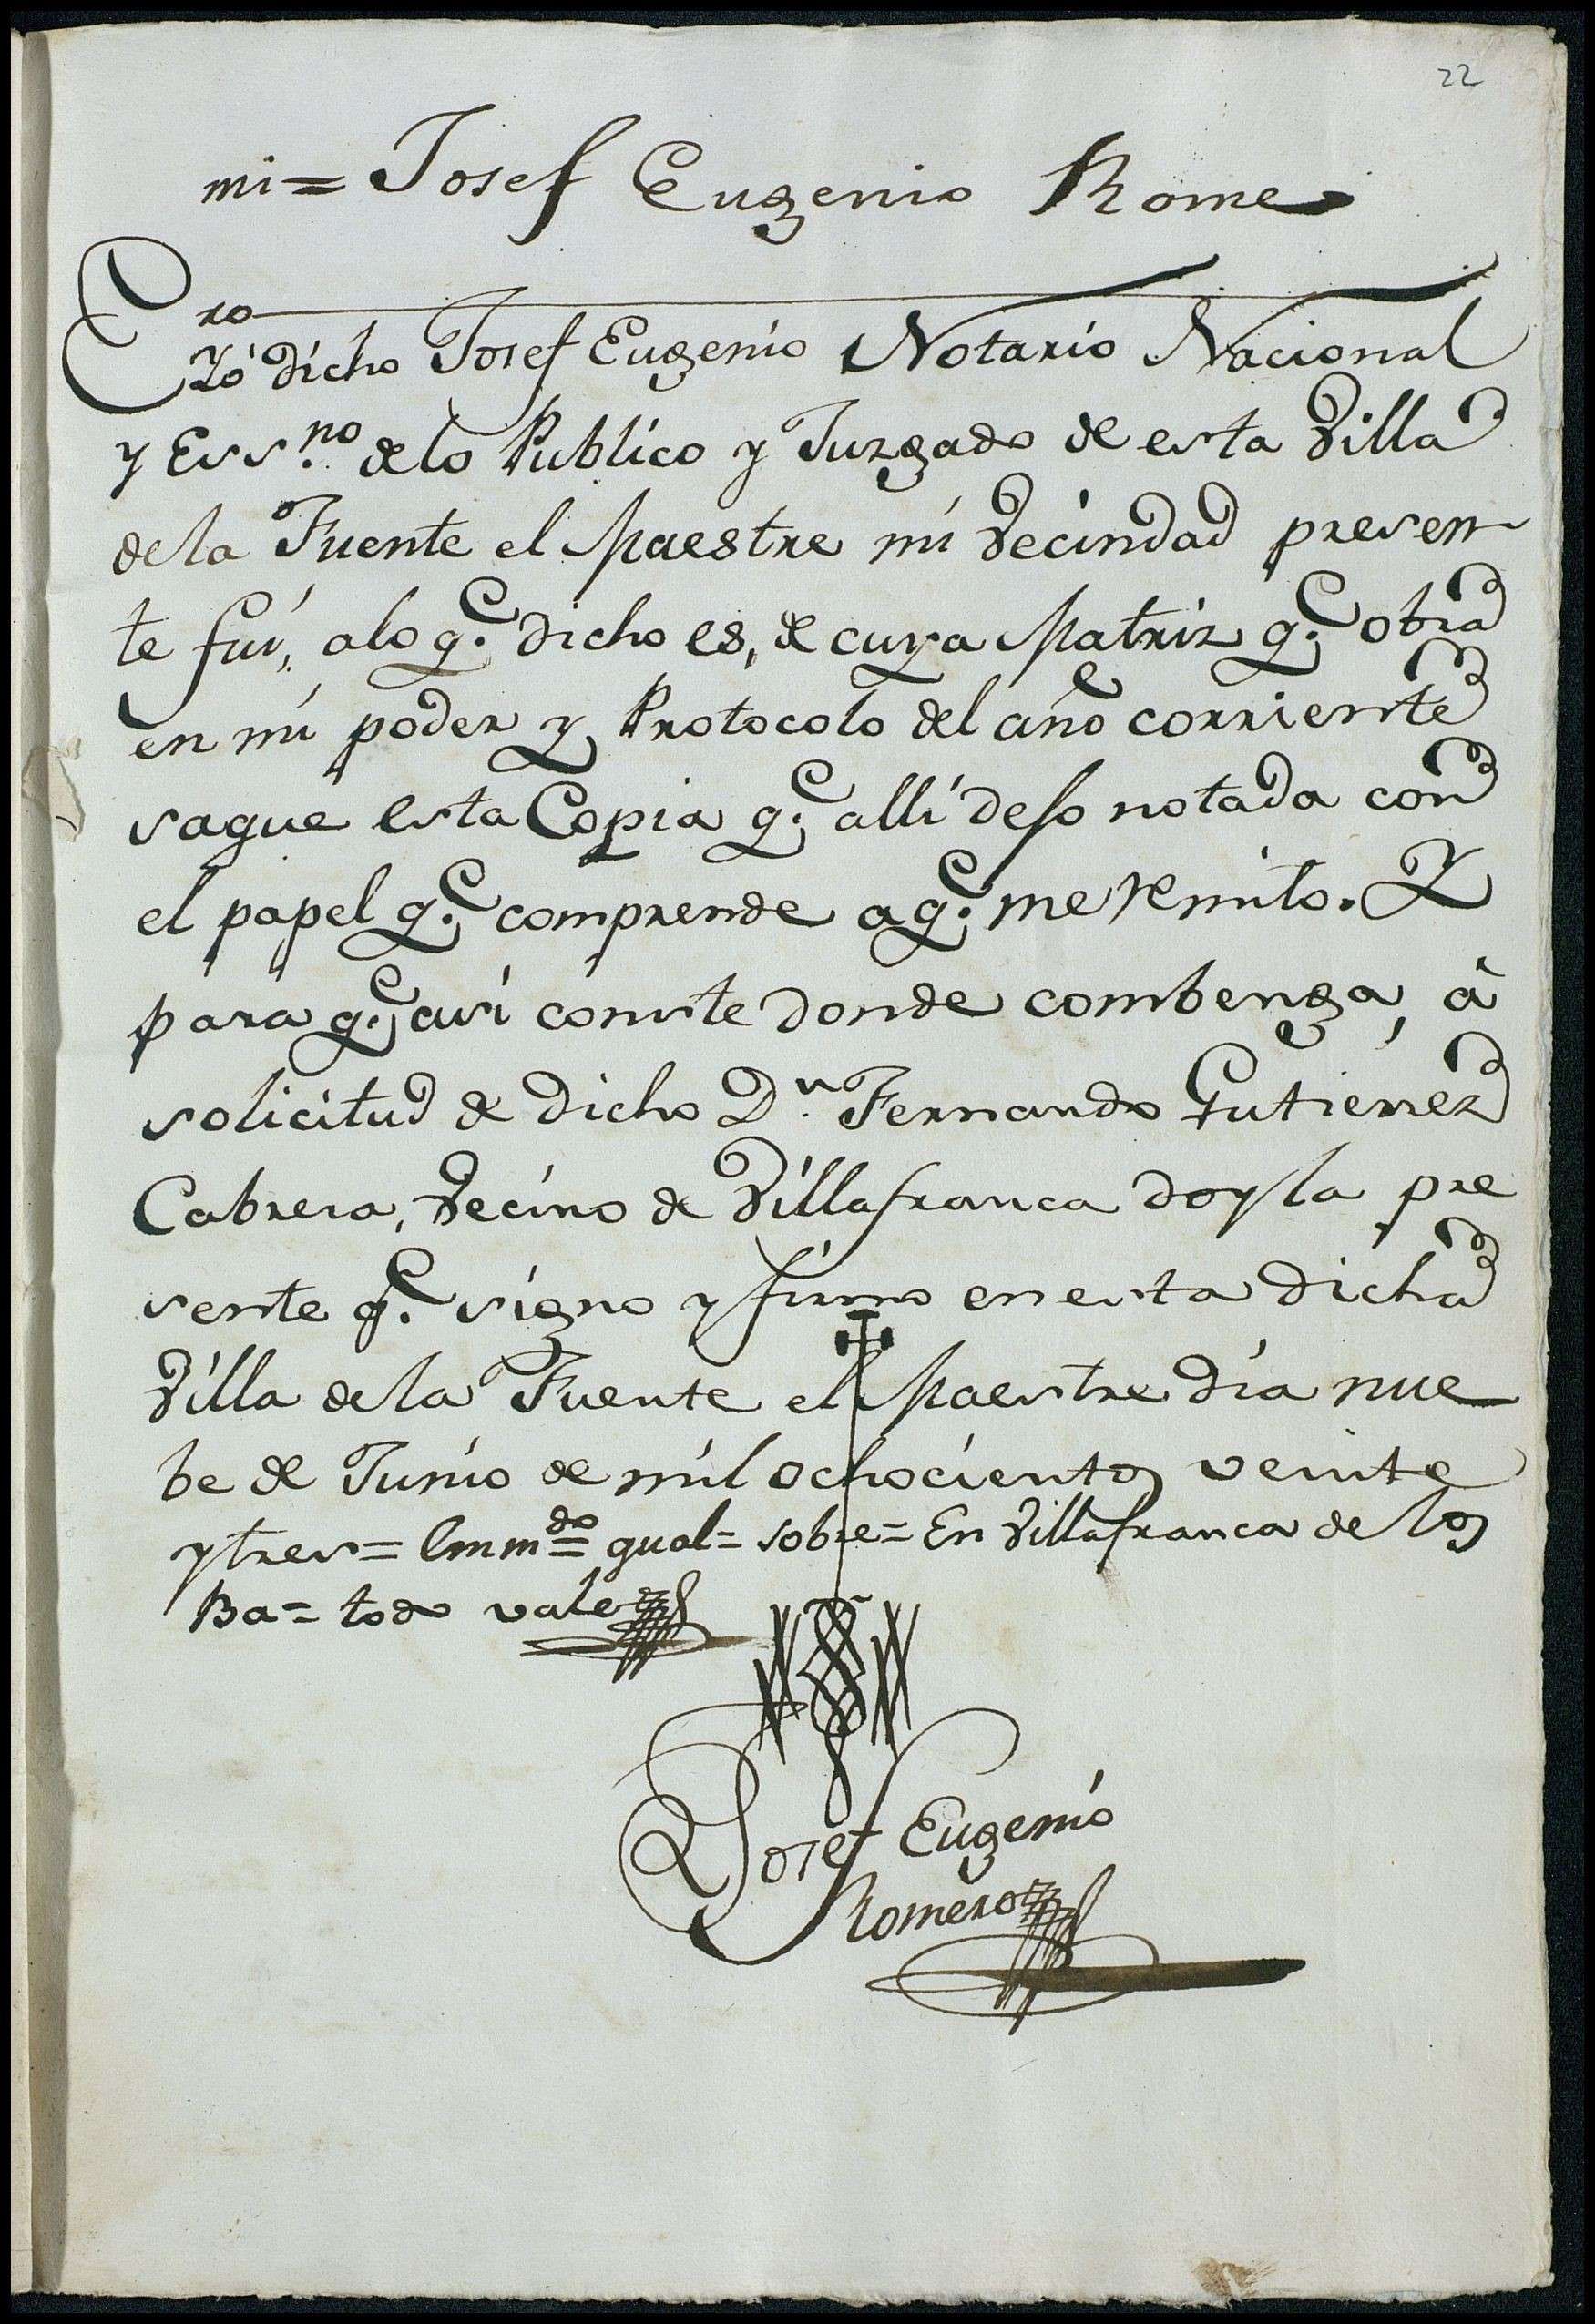 22
mi = Josef Eugenio Rome
ro
Yó dicho Josef Eugenio Notario Nacional
y Ess.no de lo Publico y Juzgado de esta Villa
de la Fuente el Maestre mi Vecindad presen
te fui, alo q.e dicho es, de cuya Matriz q.e obra
en mi poder y Protocolo del año corriente
saque esta Copia q.e allí deso notada con
el papel q.e comprende a q.e me remito. Y
para q.e asi conste donde combenga, á
solicitud de dicho D.n Fernando Gutierrez
Cabrera, Vecino de Villafranca doy la pre
sente q.e signo y firmo en esta dicha
Villa de la Fuente el Maestre dia nue
be de Junio de mil ochocientos veinte
y tres = Enm.do = gual = sobre = En Villafranca de los
Ba = todo vale
Josef Eugenio
Romero